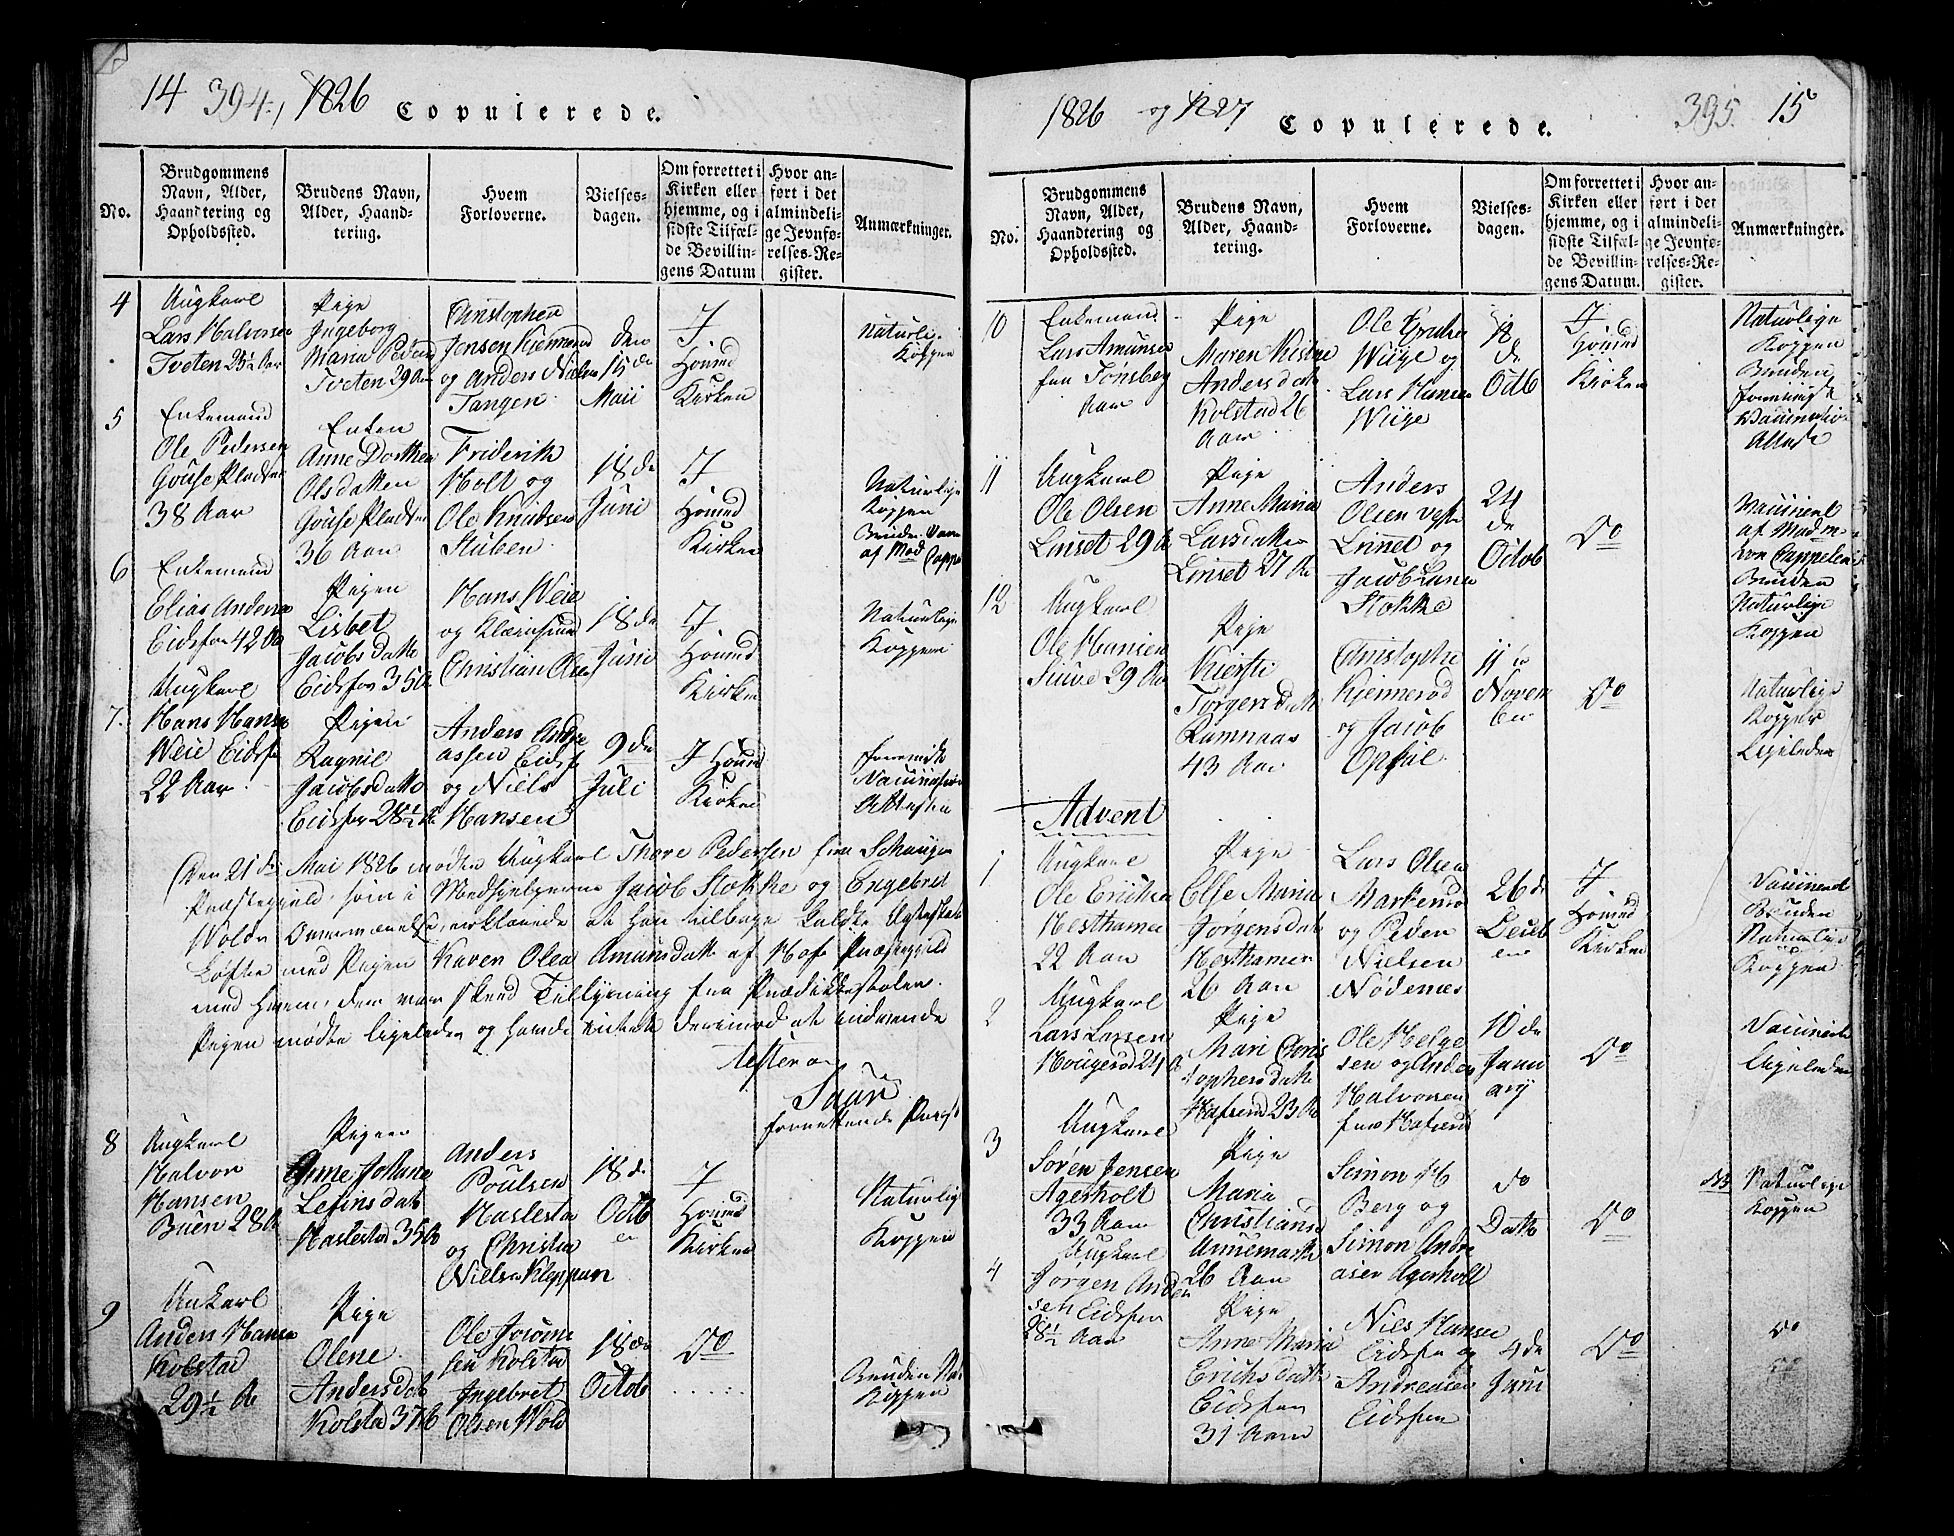 14 394. 1826 Copulerede.
No.
Brudgommens
Navn, Alder,
Haandtering og
Opholdssted.
Brudens Navn,
Alder, Haand-
tering.
Hvem
Forloverne.
Vielses-
dagen.
Om forrettet i
Kirken eller
hjemme, og i
sidste Tilfæl-
de Bevillin-
gens Datum
Hvor an-
ført i det
almindeli-
ge Jevnfø-
relses-Re-
gister.
Anmærkninger.
4
Ungkarl
Lars Halvorsen
Tveten 25½ Aar
Pige
Ingeborg
Maria Peders
Tveten 29 Aar
Christopher
Jensen Kjennerød
og Anders Nielsen
Tangen
den
15de
Maii
I
Houind
Kirken
Naturlige
Kopper
5
Enkemand
Ole Pedersen
Gouse Pladsen
38 Aar
Enken
Anne Dorthea
Olsdatter
Gouse Pladsen
36 Aar
Friderik
Holt og
Ole Knudsen
Stuben
18de
Juni
I
Houind
Kirken
Naturlige
Kopper
6
Enkemand
Elias Andersen
Eidsfos 42 Aar
Pigen
Lisbet
Jacobsdatter
Eidsfos 35 Aar
Hans Weie
og
Christian Olsen
18de
Juni
I
Houind
Kirken
Naturlige
Kopper
7.
Ungkarl
Hans Hansen
Weie Eidsfos
22 Aar
Pigen
Ragnil
Jacobsdatter
Eidsfos 28½ Aar
Anders Andre
assen Eidsf
og Niels
Hansen
9de
Juli
I Houind
Kirken
foreviiste
Vaccinations
Attester
Den 21de Mai 1826 mødte Ungkarl Thore Pedersen fra Schauger
Præstegjeld som i Medhjelperne Jacob Stokke og Engebret
Wolds Overværelse, erklærede at han tilbage kaldte Ægteskabs
Løfte med Pigen Karen Olea Amunsdatter af Hofs Præstegjeld
med hvem, der var skeed Tillysning fra Prædikkestolen.
Pigen mødte ligeledes og havde intet derimod at indvende
Testerer
forrettende Præst
8
Ungkarl
Halvor
Hansen
Buen 28 Aar
Pigen
Anne Johana
Lefinsdat
Haslestad 35 Aar
Anders
Poulsen
Haslestad
og Christen
Nielsen Kloppen
18de
Octb
er
I
Houind
Kirken
Naturlig
Kopper
9
Unkarl
Anders Hansen
Kolstad
29½ Aar
Pige
Olene
Andersdat
Kolstad 37 Aar
Ole
sen Kolstad
Ingebret
Olsen Wold
18de
Octob
Do
Bruden Nat
Kopper
1826 og 1827 Copulerede. 395. 15
No.
Brudgommens
Navn, Alder,
Haandtering og
Opholdssted.
Brudens Navn,
Alder, Haand-
tering.
Hvem
Forloverne.
Vielses-
dagen.
Om forrettet i
Kirken eller
hjemme, og i
sidste Tilfæl-
de Bevillin-
gens Datum.
Hvor an-
ført i det
almindeli-
ge Jevnfø-
relses-Re-
gister.
Anmærkninger.
10
Enkemand
Lars Amunsen
fra Tønsberg
Aar
Pige
Maren Kistine
Andersdatter
Kolstad 26
Aar
Ole
Wiige og
Lars Hansen
Wiige
18
de
Octb
I
Houind
Kirken
Naturlige
Kopper
Bruden
foreviiste
Vaccinations
Attest
11
Ungkarl
Ole Olsen
Linnet 29 Aar
Pige
Anne Maria
Larsdatter
Linnet 27 Aar
Anders
Olsen vestre
Linnet og
Jacob Larsen
Stokke
24
de
Octob
Do
Vaccineret
af Madm
von Cappelen
Bruden
Naturlige
Kopper
12
Ungkarl
Ole Hansen
29 Aar
Pige
Kirsti
Torgersdatter
Ramnaas
43 Aar
Christopher
Kjennerød
og Jacob
Opsal
11te
Novem
ber
Do
Naturlige
Kopper
Ligeledes
Advent
1
Ungkarl
Ole Ericksen
Hesthamer
22 Aar
Pige
Else Maria
Jørgensdat
Hesthamer
26 Aar
Lars Olsen
Markerud
og Peder
Nielsen
Nødenæs
26de
Decb
er
I
Houind
Kirken
Vaccineret
Bruden
Naturlige
Kopper
2
Ungkarl
Lars Larsen
Hougerød 24 Aar
Pige
Mari Chris
tophersdatter
23 Aar
Ole Helge
sen og Anders
Halvorsen
10de
Janu
arj
Do
Vaccineret
Ligeledes
3
Ungkarl
Søren Jensen
Agerholt
33 Aar
Pige
Maria
Christians
26 Aar
Simon
Berg og
Simon Andre
asen Agerholt
do
Dato
Do
NB Naturlige
Kopper
4
Ungkarl
Jørgen Ander
sen Eidsfos
28½ Aar
Pige
Anne Maria
Erichsdatter
Eidsfos
31 Aar
Niels Hansen
Eidsfos og
Andreasen
Eidsfos
4de
Do
do
do